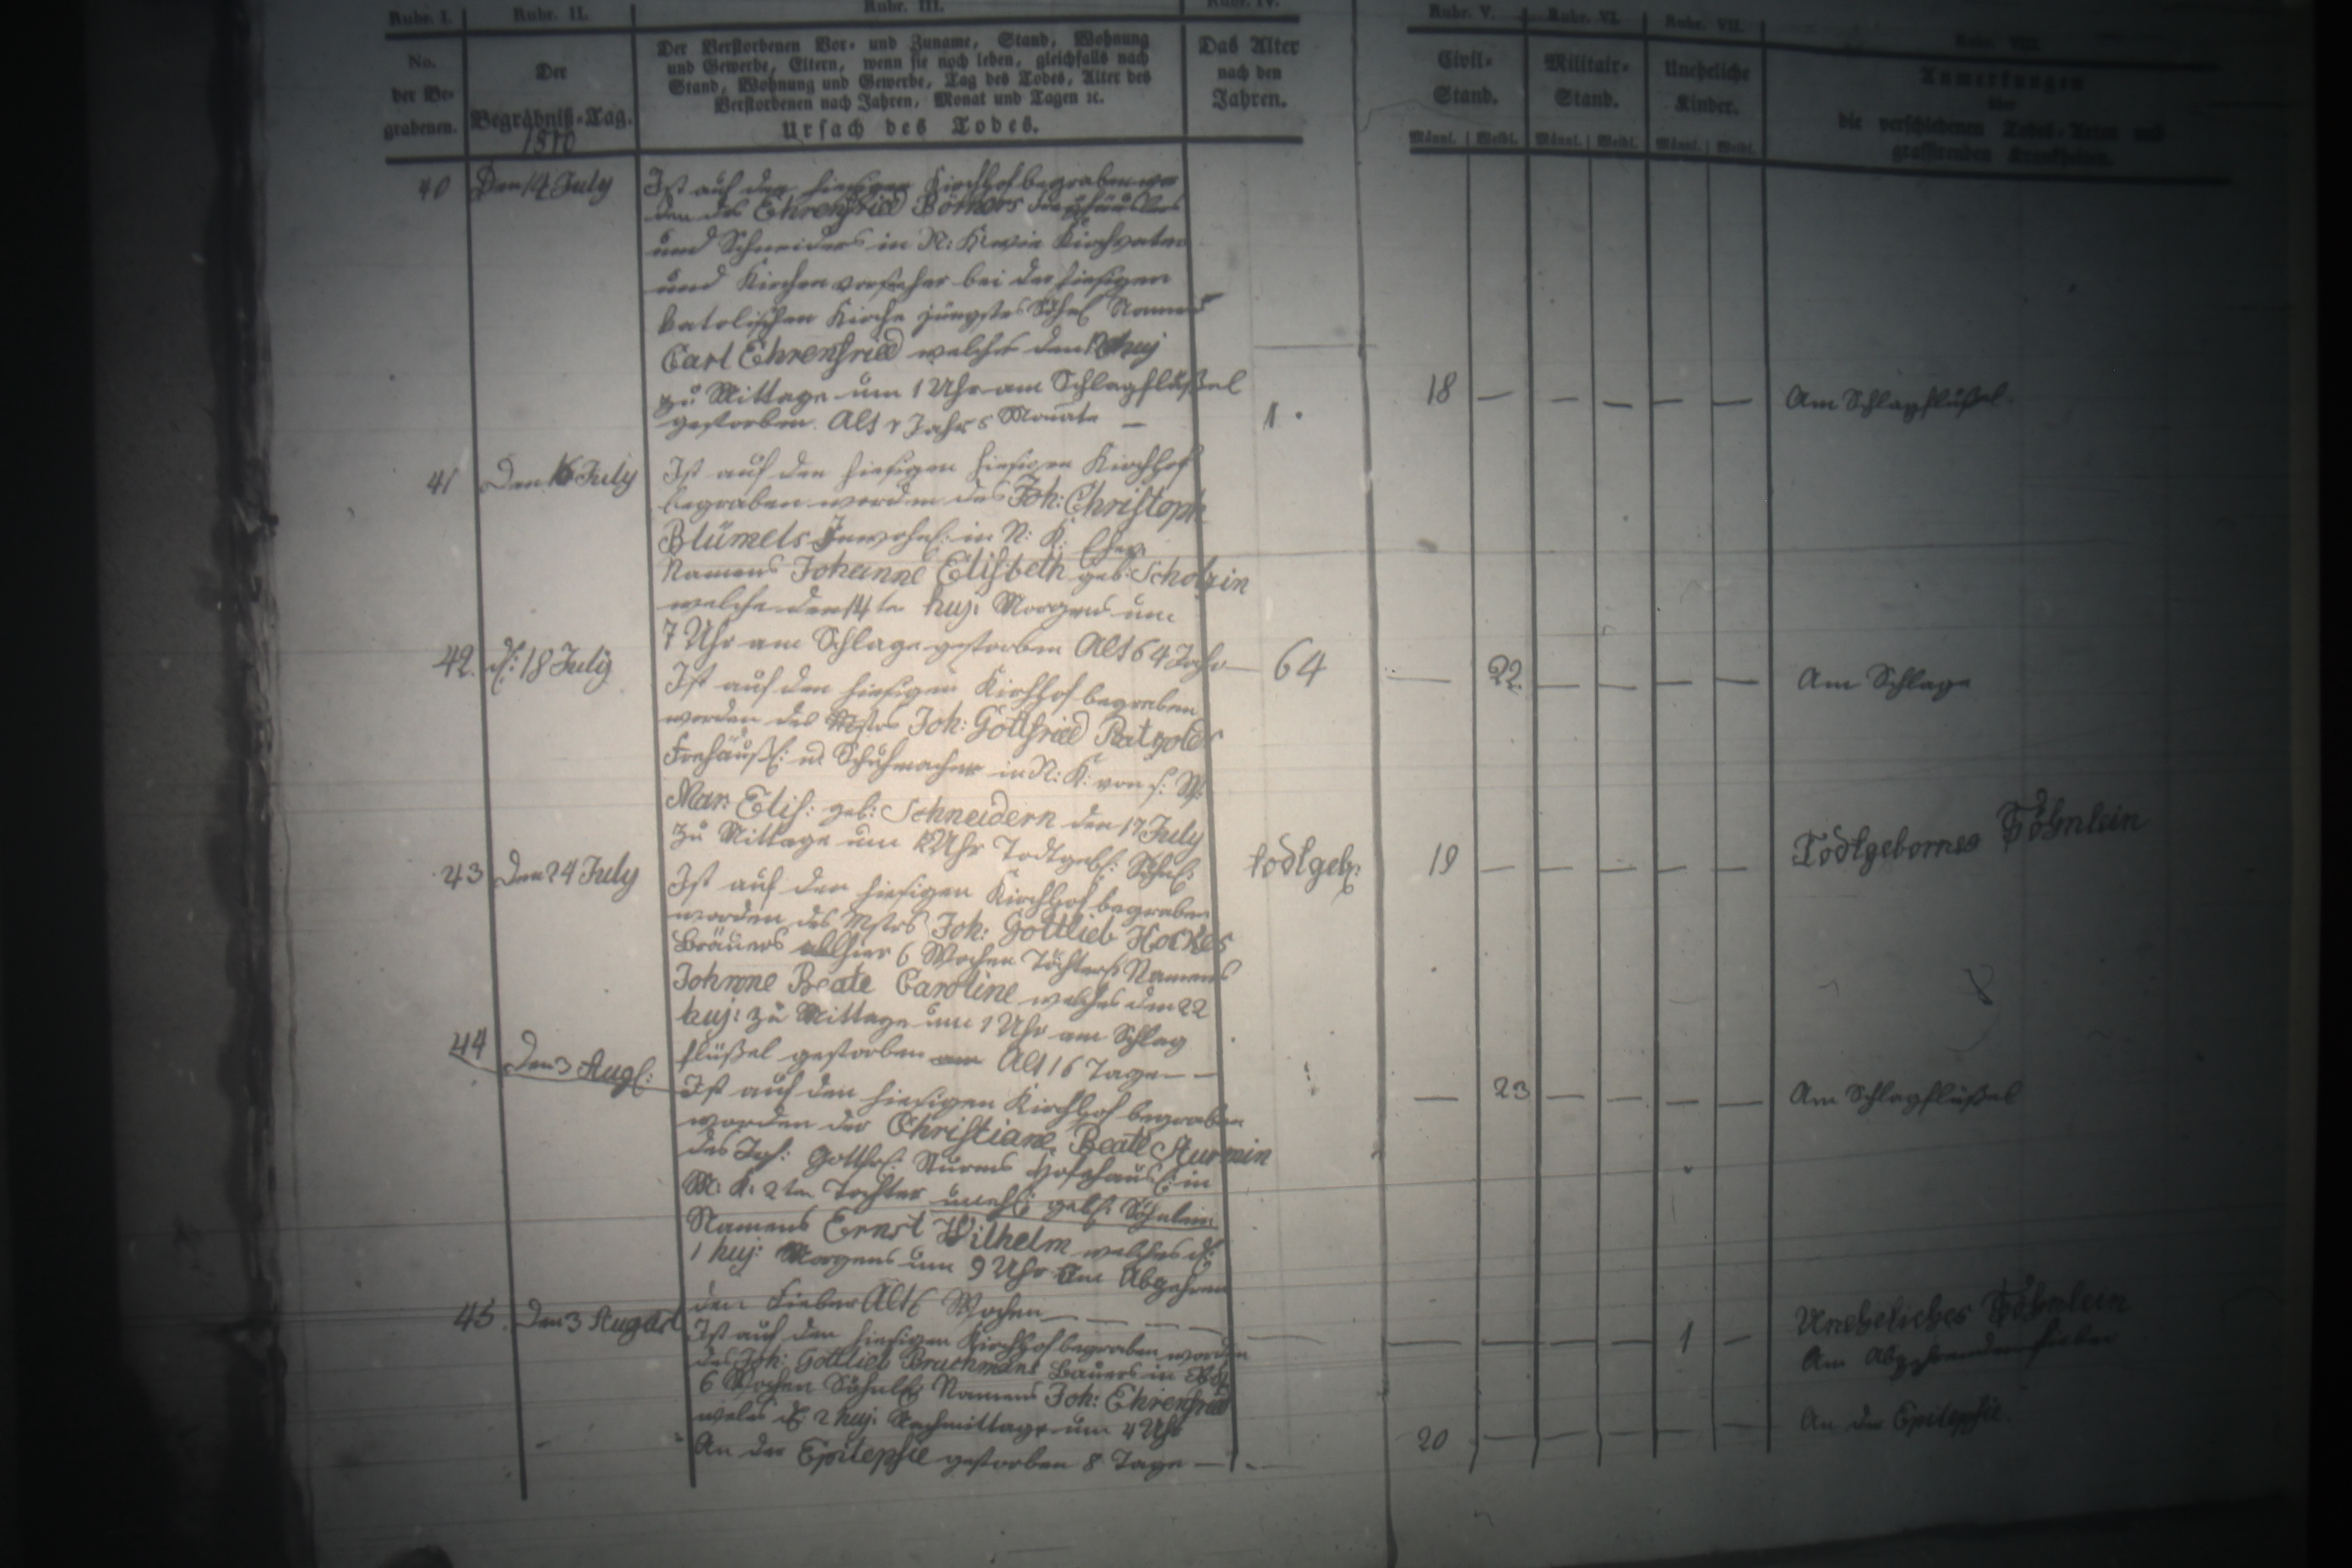 Rubr. I. Rubr. II. Rubr. III. Rubr. IV. Rubr. V. Rubr. VI. Rubr. VII. Rubr. VIII.
No. der Be- grabenen.
Der Begräbniß-Tag.
1810
Der Verstorbenen Vor- und Zuname, Stand, Wohnung
und Gewerbe, Eltern, wenn sie noch leben, gleichfalls nach
Stand, Wohnung und Gewerbe, Tag des Todes, Alter des
Verstorbenen nach Jahren, Monat und Tagen ꝛc.
Ursach des Todes.
Das Alter
nach den
Jahren.
Civil-
Stand.
Militair-
Stand.
Uneheliche
Kinder.
Anmerkungen
über
die verschiedenen Todes-Arten und
grassirenden Krankheiten.
Männl. | Weibl. Männl. | Weibl. Männl. | Weibl.
40 Den 14 July
Ist auf den hiesigen Kirchhof begraben wor
den des Ehrenfried Börners
und Schneiders in N: K. Kirchvater
und Kirchen vorsteher bei der hiesigen
katolischen Kirche jüngstes Söhnl Namens
Carl Ehrenfried welches den huj
zu Mittage um 1 Uhr am Schlagflüßel
gestorben. Alt 1 Jahr 5 Monate —
1 . 18 — — — — — Am Schlagflüßel.
41 Den 16 July
Ist auf den hiesigen hiesigen Kirchhof
begraben worden des Joh: Christoph
Blümels Inwohn: in N: K: Ehew.
Namens Johanne Elisbeth geb: Scholzin
welche den 14 ten huj: Morgens um
7 Uhr am Schlage gestorben Alt 64 Jahr —
64 — 22. — — — — Am Schlage
42. d: 18 July
Ist auf den hiesigen Kirchhof begraben
worden des Mstrs Joh: Gottfried Ratgolds
Freihäußl: u Schuhmacher in N: K. von s: W:
Mar: Elis: geb: Schneidern den 17 July
zu Mittage um 12 Uhr Todtgeb: Söhnl:
todtgeb: 19 — — — — — Todtgebornes Söhnlein
43 Den 24 July
Ist auf den hiesigen Kirchhof begraben
worden des Mstrs Joh: Gottlieb Hockes
Bräuers allhier 6 Wochen Töchterl: Namens
Johnne Beate Caroline welches den 22
huj: zu Mittage um 1 Uhr am Schlag
flüßel gestorben am Alt 16 Tage — —
— 23 — — — — Am Schlagflüßel
44 Den 3 Aug:
Ist auf den hiesigen Kirchhof begraben
worden der Christiane Beate Sturmin
des Joh: Gottfr: Sturms Hofehäusl: in
N: K: 2ten Tochter unehl: geb: Söhnlein
Namens Ernst Wilhelm welches d:
1 huj: Morgens um 9 Uhr Am Abzehren
den Fieber Alt 6 Wochen — — —
— — — — 1 — Uneheliches Söhnlein
Am Abzehrenden Fieber
45. Den 3 August
Ist auf den hiesigen Kirchhof begraben worden
des Joh: Gottlieb Bruchmans Bauers in
6 Wochen Söhnl: Namens Joh: Ehrenfried
welches d: 2 huj: Nachmittage um 4 Uhr
An der Epilepsie gestorben 8 Tage —
20 — — — — — An der Epilepsie.